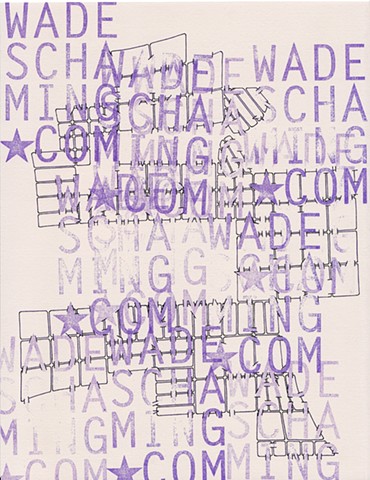 WADE
SCHA
MING
★COM
WADE
SCHA
MING
★COM
WADE
SCHA
MING
★COM
WADE
SCHA
MING
★COM
WADE
SCHA
MING
★COM
WADE
SCHA
MING
★COM
WADE
SCHA
MING
★COM
WADE
SCHA
MING